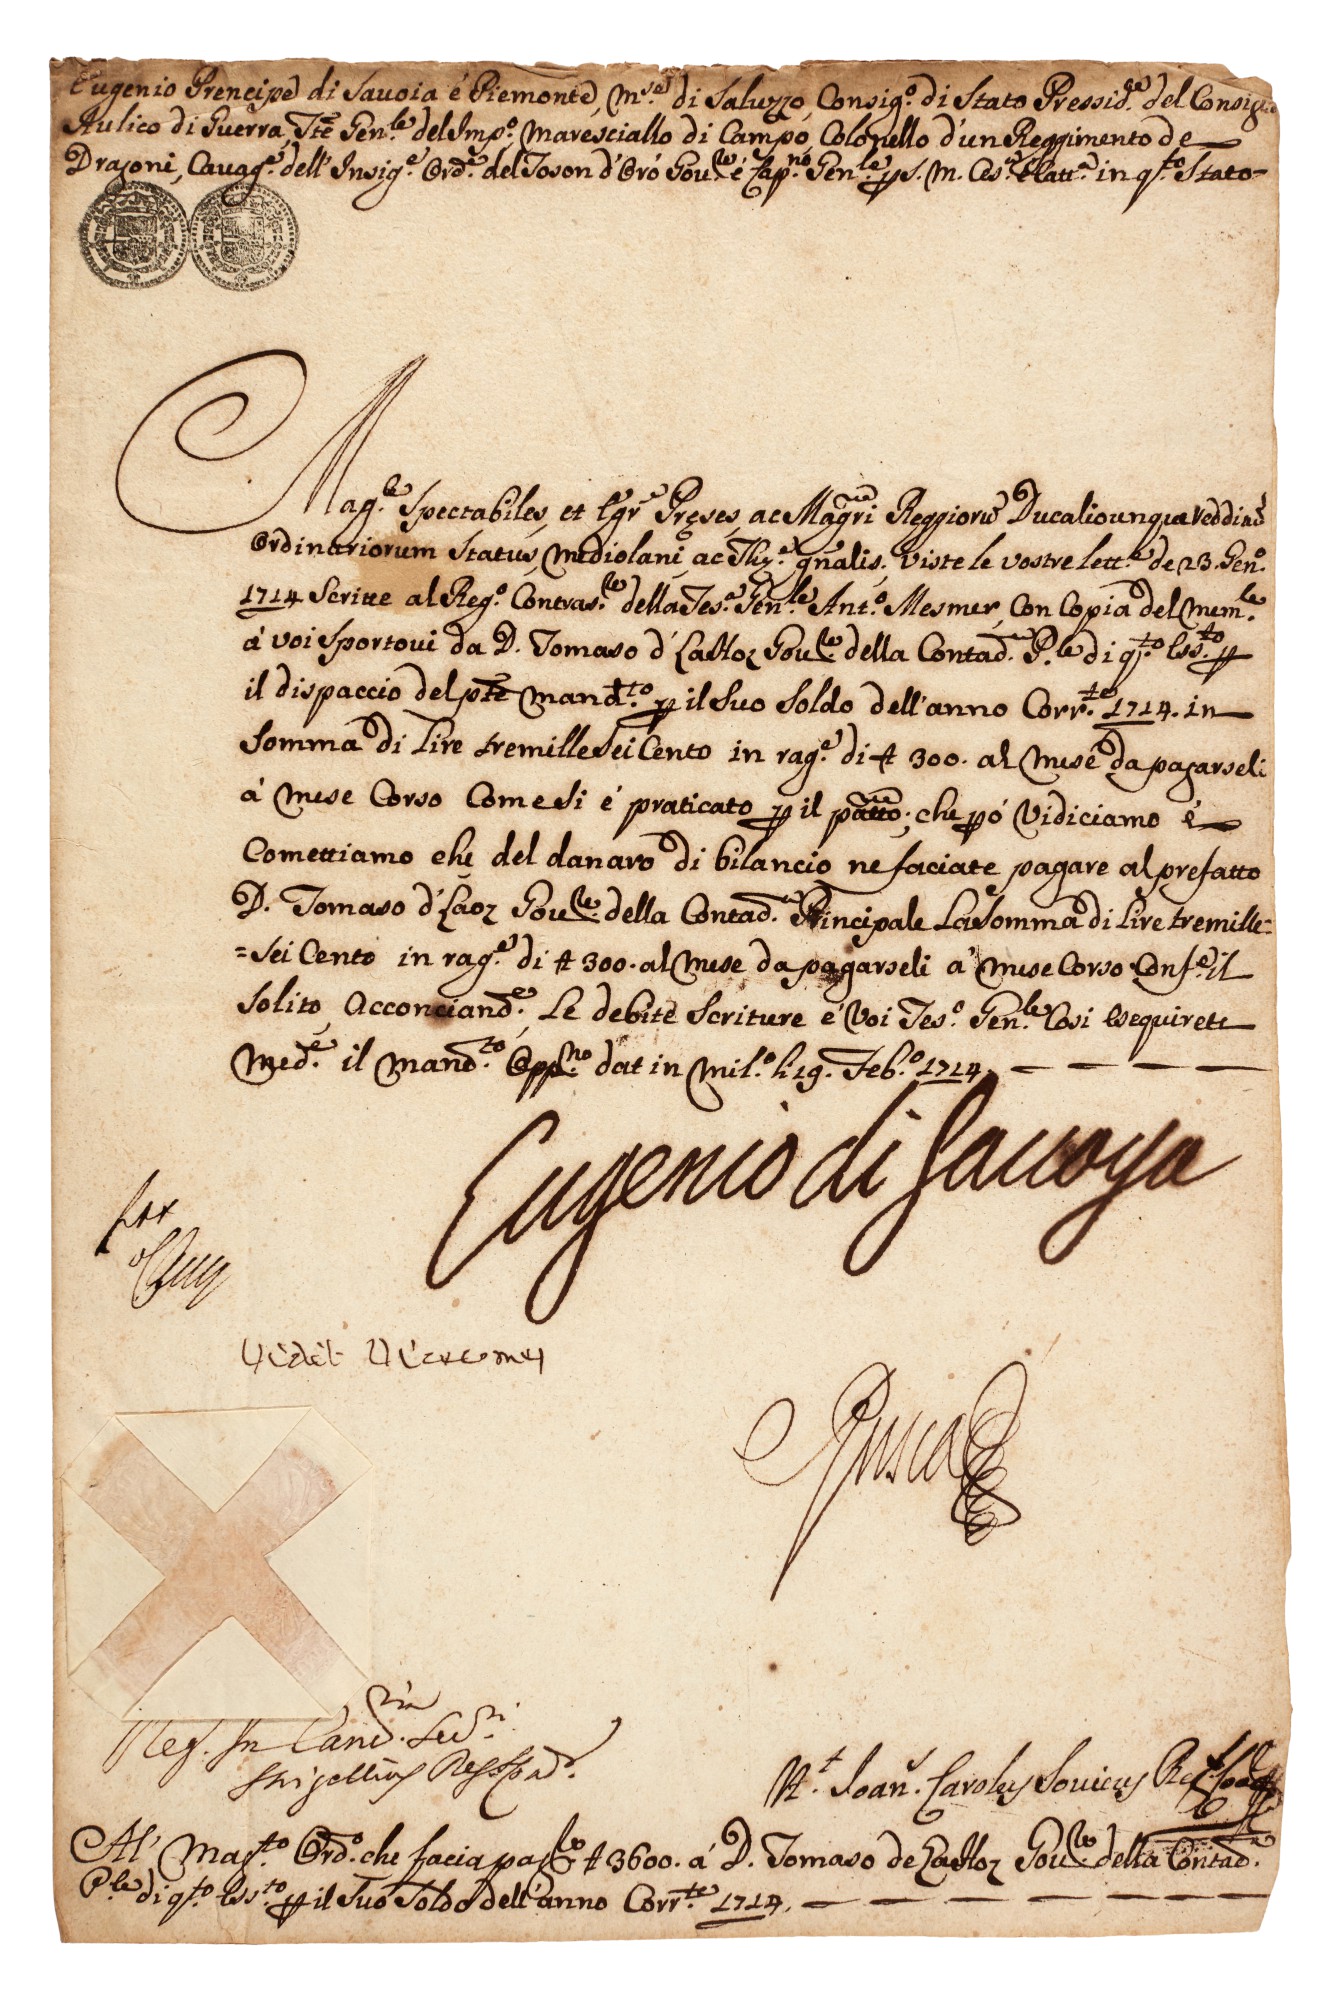 Eugenio Prencipe di Sauoia é Piemonte, M.se di Saluzzo, Consig.o di Stato Pressid.te del Consig.o
Aulico di Guerra, Tte Gen.le del Imp.o Maresciallo di Campo, Colonello d'un Reggimento de
Dragoni, Cauagg.e dell'Insig.e Ord.e del Toson d'Oró Gou.re é Cap.no Gen.le p S. M. Ces.a é Catt.a in q.to Stato
Mag.le Spectabiles, et Egr. Preses, ac Magri Reggiorũ Ducaliounqua reddituũ
Ordinariorum Status Mediolani, ac Thz.e gñalis. Viste le vostre lett.e de 23. Gen.o
1714 Scritte al Reg.o Contras.le della Tes.a Gen.le Ant.o Mesmer, Con Copia del mem.le
á voi Sportoui da D. Tomaso d' Gou.re della Contad.a P.le di q.to Ess.to p
il dispaccio del pñte Mand.to p il Suo Soldo dell'anno Corr.te 1714. in
Somma di Lire tremille Sei Cento in rag.e di ₶ 300. al Mese da pagarseli
á Mese Corso Come Si é praticato p il pãtto; che pó Vi diciamo é
Comettiamo che del danaro di bilancio ne faciate pagare al prefatto
D. Tomaso d' Gou.re della Contad.a Principale La Somma di Lire tremille=
=Sei Cento in rag.e di ₶ 300. al Mese da pagarseli a' Mese Corso Conf.e il
Solito, Acconciand.e Le debite Scriture é Voi Tes.o Gen.le Cosi Esequirete
Med.e il Mand.to Opp.no dat in Mil.o li 19. Feb.o 1714.
Eugenio di Sauoya
Vidit
Rusca
Reg. In Canc.ria Sec.
N.t Joan. Carolus
Al' Mag.to Ord.o che facia pag.re ₶ 3600. á D. Tomaso de Gou.re della Contad.a
P.le di q.to Ess.to p il Suo Soldo dell'anno Corr.te 1714.